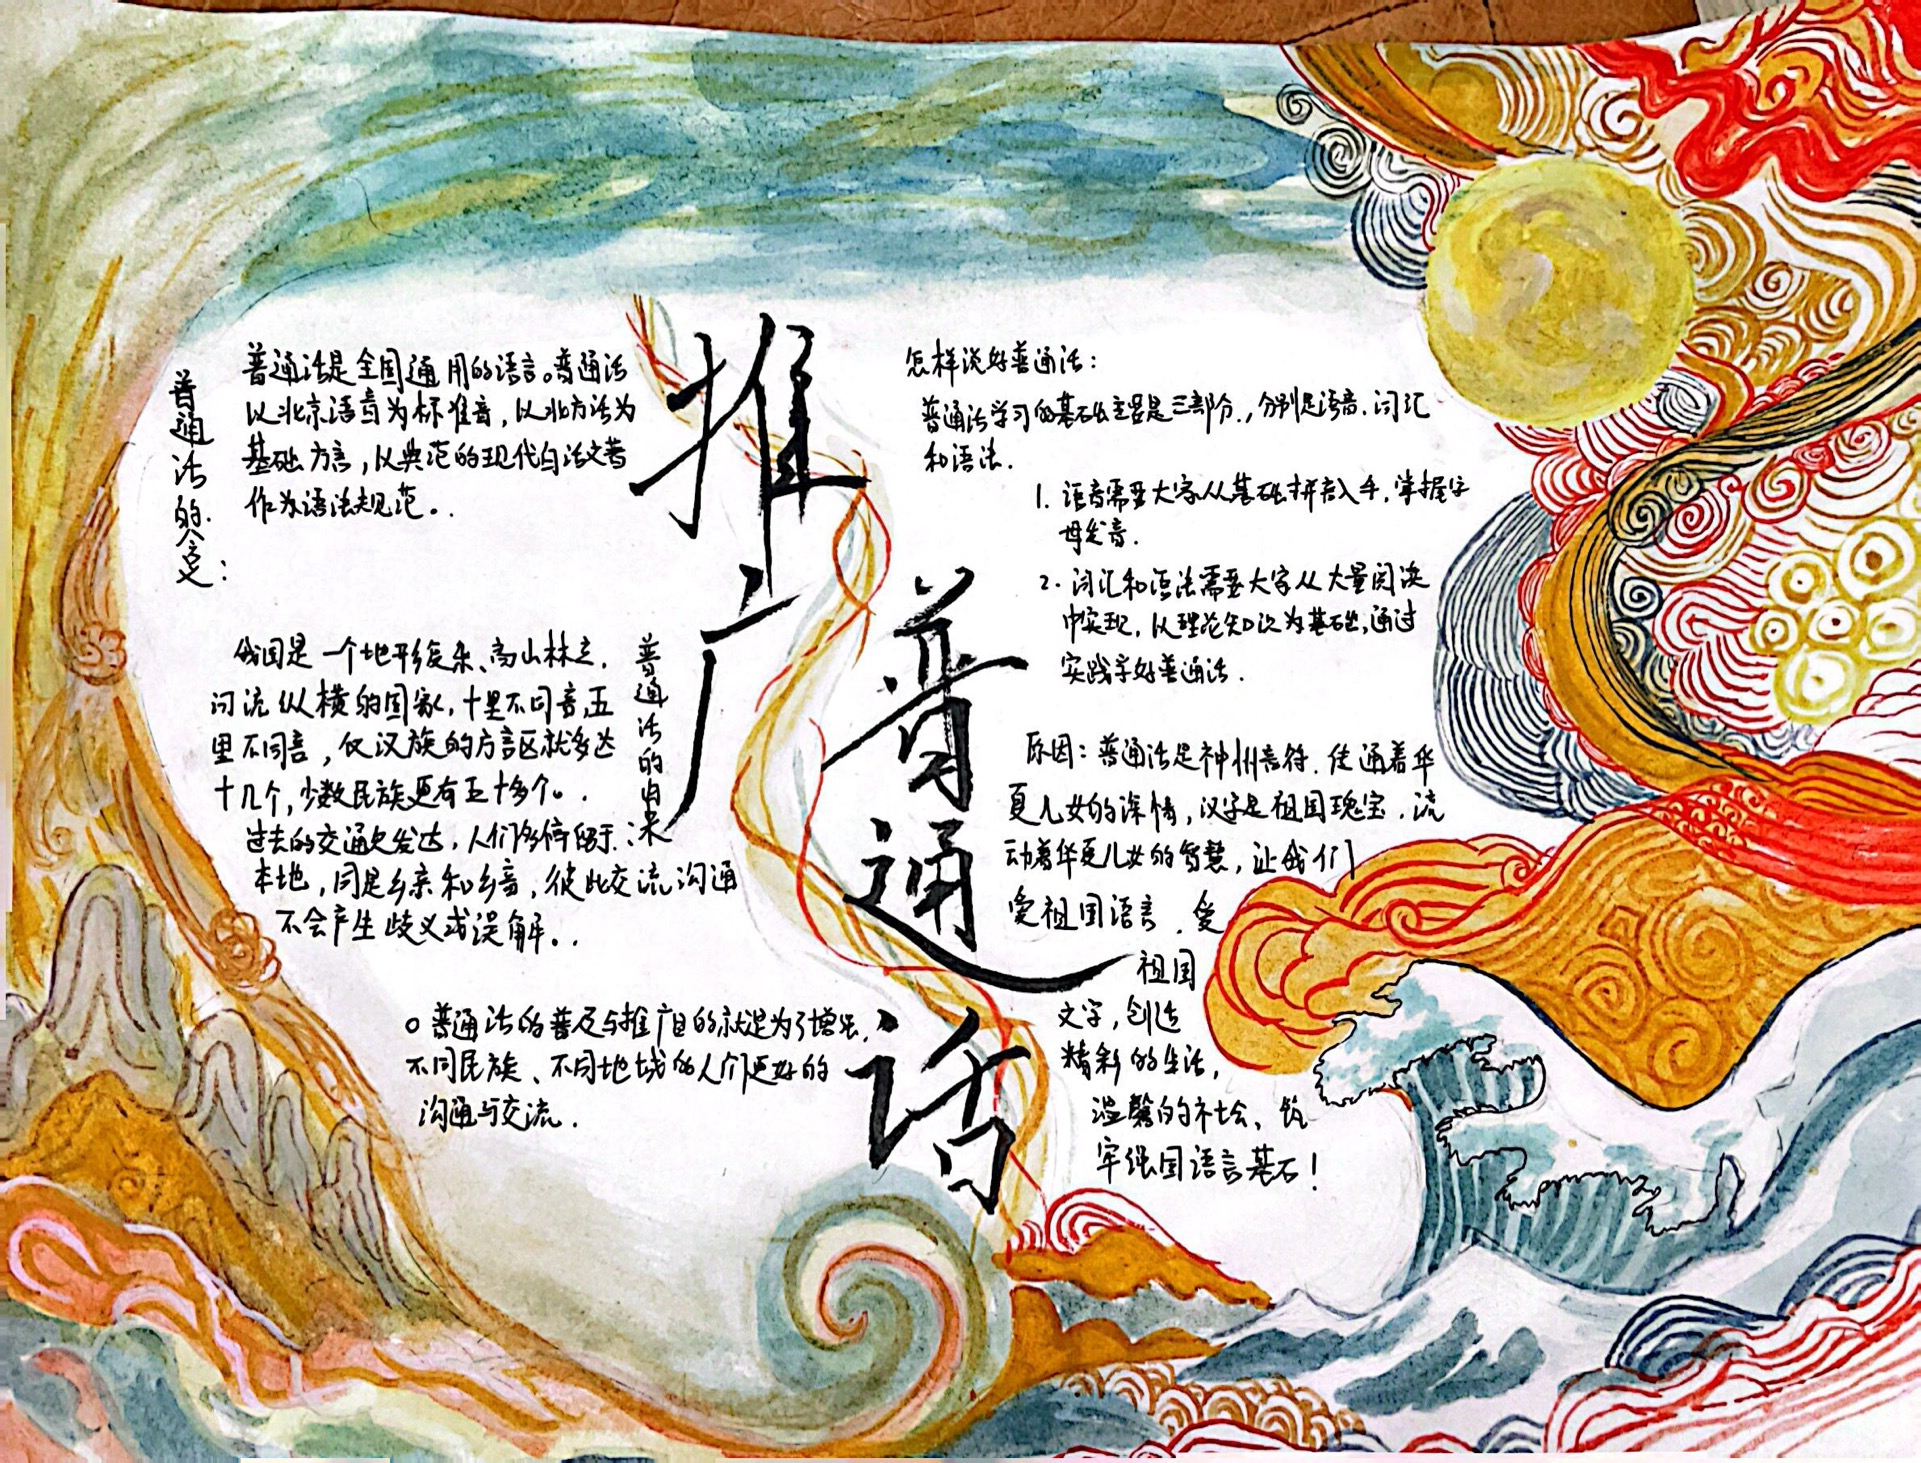 推广普通话
普通话的含义:
普通话是全国通用的语言。普通话
以北京语音为标准音，以北方话为
基础方言，以典范的现代白话文著
作为语法规范。.
普通话的由来:
我国是一个地形复杂、高山林立,
河流纵横的国家，十里不同音,五
里不同言，仅汉族的方言区就多达
十几个，少数民族更有五十多个。.
过去的交通欠发达，人们多停留于
本地，同是乡亲和乡音，彼此交流沟通
不会产生歧义或误解。.
普通话的普及与推广目的就是为了增强,
不同民族、不同地域的人们更好的
沟通与交流.
怎样说好普通话:
普通话学习的基础主要是三部分.，分别是语音.词汇
和语法.
1. 语音需要大家从基础拼音入手,掌握字
母发音.
2. 词汇和语法需要大家从大量阅读
中实现，以理论知识为基础,通过
实践学好普通话.
原因：普通话是神州音符.传通着华
夏儿女的深情，汉字是祖国瑰宝.流
动着华夏儿女的智慧，让我们
爱祖国语言.爱
祖国
文字，创造
精彩的生活，
温馨的社会、筑
牢强国语言基石！